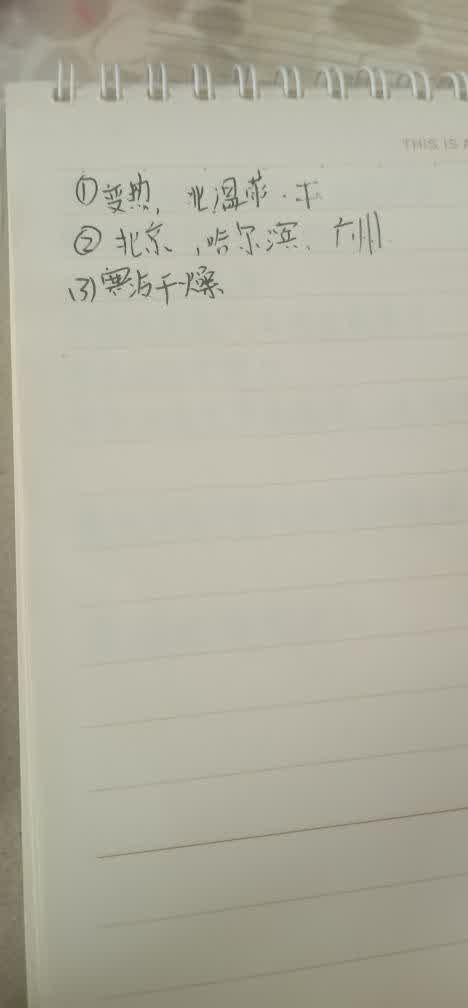 THIS IS A
①变热，北温带·木
②北京，哈尔滨、广州
(3)寒冷干燥